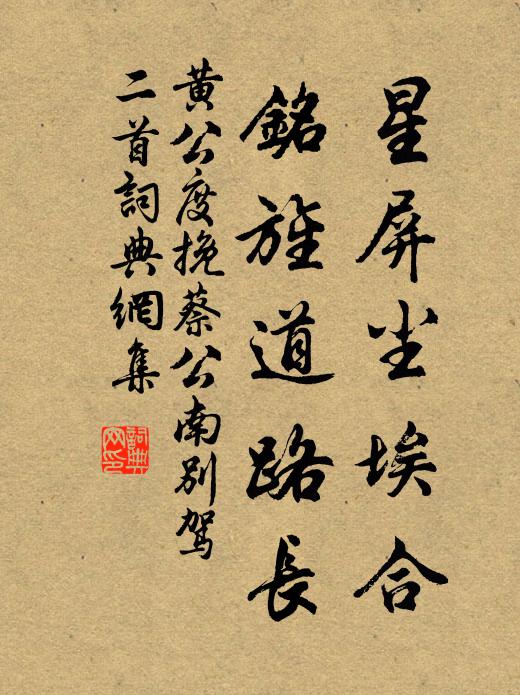 星屏尘埃合
銘旌道路長
黄公度挽蔡公南别駕
二首詞典網集
詞典網印